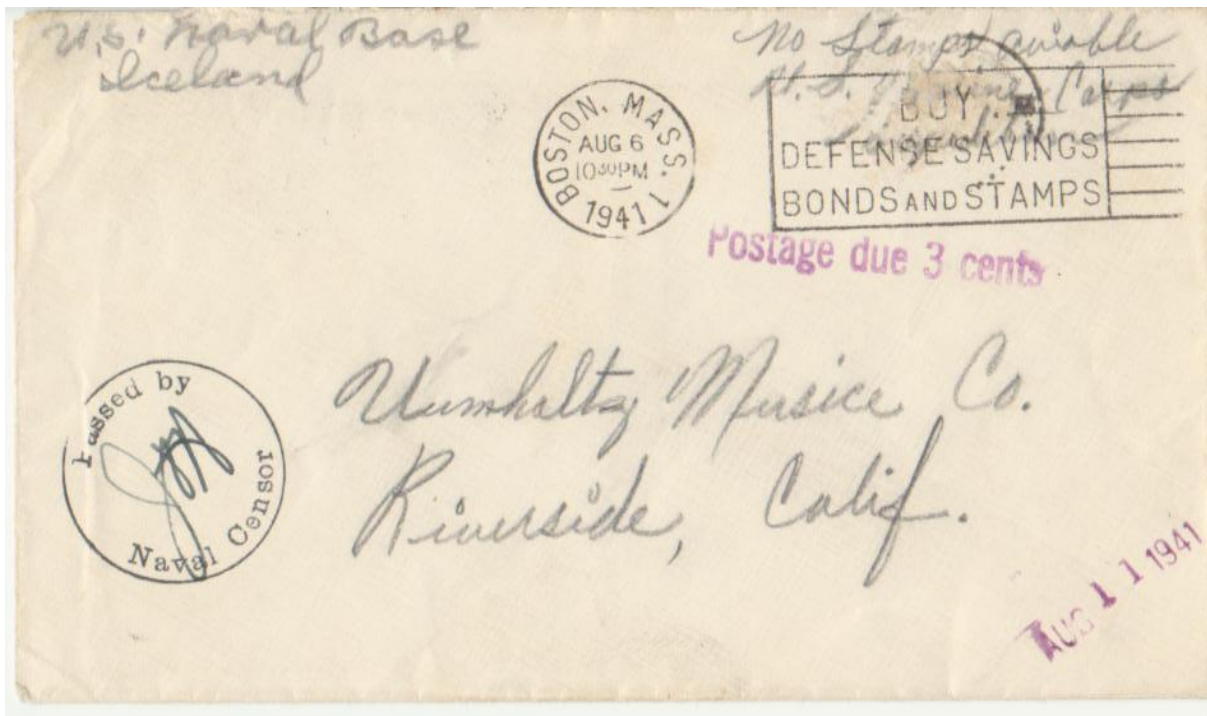 U.S. Naval Base
Iceland
No Stamps avirable
U.S. Marine Corps
BOSTON, MASS. 1
AUG 6
10 30 PM
1941
BUY
DEFENSE SAVINGS
BONDS AND STAMPS
Postage due 3 cents
Passed by
Naval Censor
Musice Co.
Riverside, Calif.
AUG 11 1941